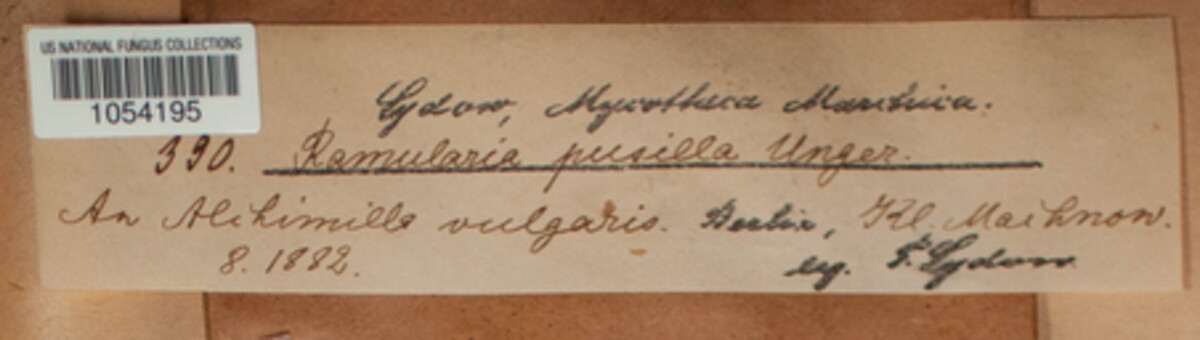 US NATIONAL FUNGUS COLLECTIONS
1054195
Sydow, Mycotheca Marchica.
390. Ramularia pusilla Unger.
An Alchimilla vulgaris. Berlin, Kl. Machnow.
8. 1882. leg. P. Sydow